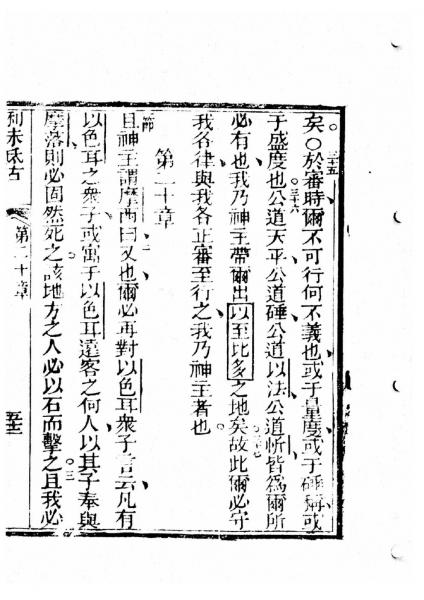 矣○三十五於審時爾不可行何不義也或于量度或于砘稱或
于盛度也三十六公道天平公道砘公道以法公道忻皆爲爾所
必有也我乃神主帶爾出以至比多之地矣三十七故此爾必守
我各律與我各正審至行之我乃神主者也
第二十章
一節且神主謂摩西曰二又也爾必再對以色耳衆子言云凡有
以色耳之衆子或寓于以色耳遠客之何人以其子奉與
摩落則必固然死之該地方之人必以石而擊之三且我必
利未氏古
第二十章